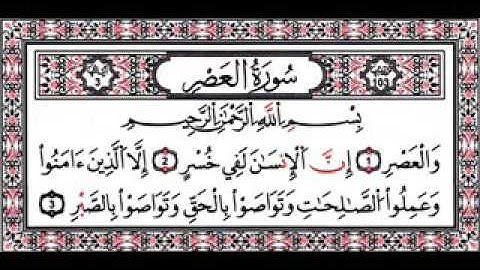 سُورَةُ الْعَصْرِ
بِسْمِ اللَّهِ الرَّحْمَٰنِ الرَّحِيمِ
وَالْعَصْرِ 1 إِنَّ الْإِنسَانَ لَفِي خُسْرٍ 2 إِلَّا الَّذِينَ ءَامَنُوا
وَعَمِلُوا الصَّالِحَاتِ وَتَوَاصَوْا بِالْحَقِّ وَتَوَاصَوْا بِالصَّبْرِ 3